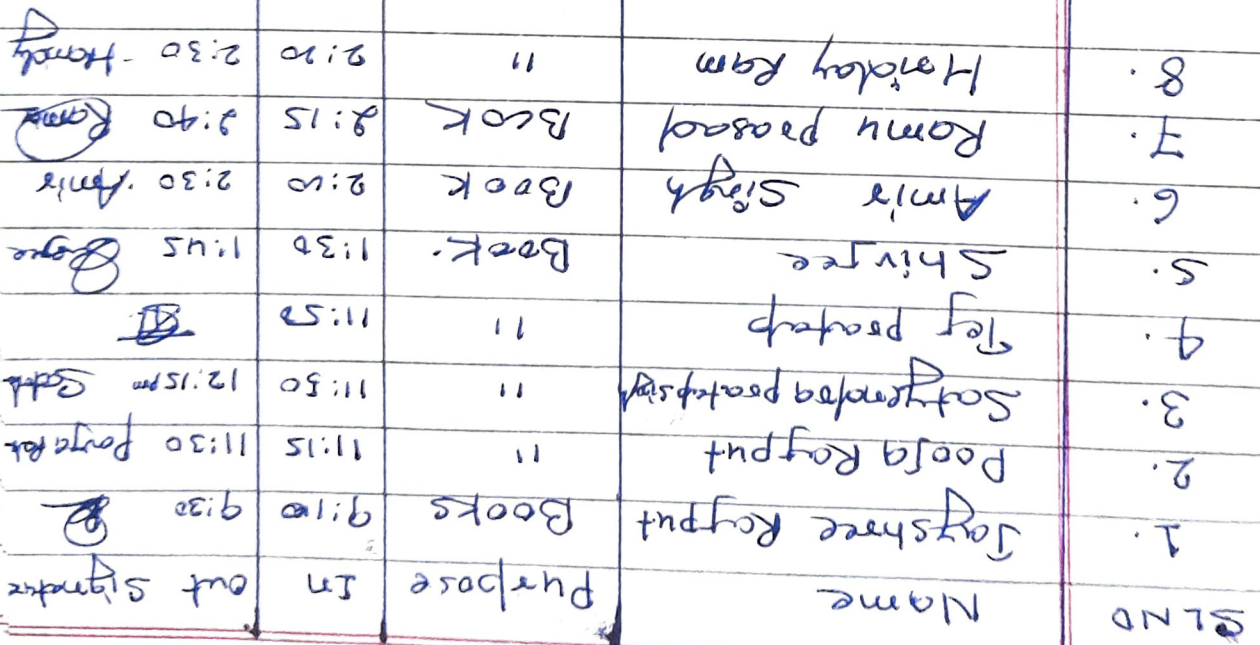 SLNO Name Purpose In out Signature
1. Jayshree Rajput Books 9:10 9:30
2. Pooja Rajput 11 11:15 11:30
3. Satyendra pratap singh 11 11:50 12:15 pm
4. Tej pratap 11 11:50
5. Shivjee Book. 1:30 1:45
6. Amir Singh Book 2:10 2:30 Amir
7. Ramu prasad Book 2:15 2:40
8. Hariday Ram 11 2:20 2:30